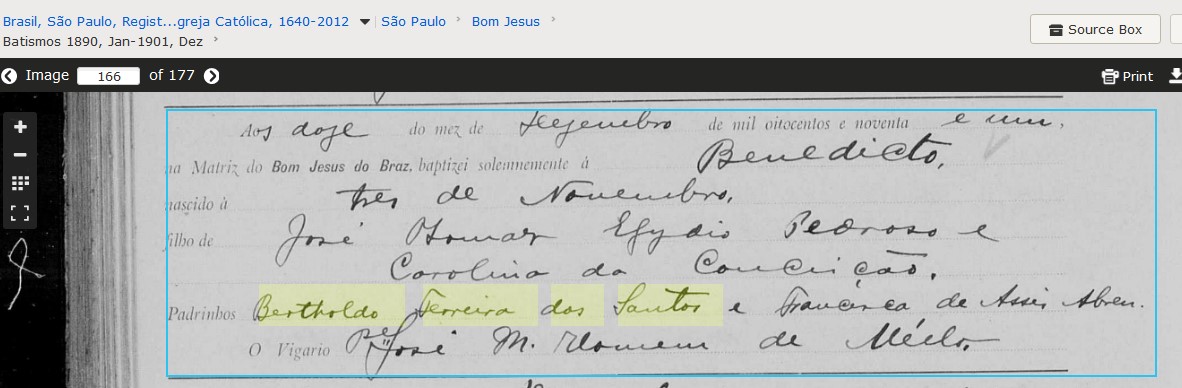 Brasil, São Paulo, Regist...greja Católica, 1640-2012 São Paulo Bom Jesus
Batismos 1890, Jan-1901, Dez
Source Box
Image 166 of 177 Print
Aos doze do mez de Dezembro de mil oitocentos e noventa e um,
na Matriz do Bom Jesus do Braz, baptizei solennemente á Benedicto,
nascido á tres de Novembro,
filho de José Thomaz Egydio Pedroso e
Carolina da Conceição.
Padrinhos Bertholdo Ferreira dos Santos e Francisca de Assis Abreu.
O Vigario Pe José M. Homem de Mello.